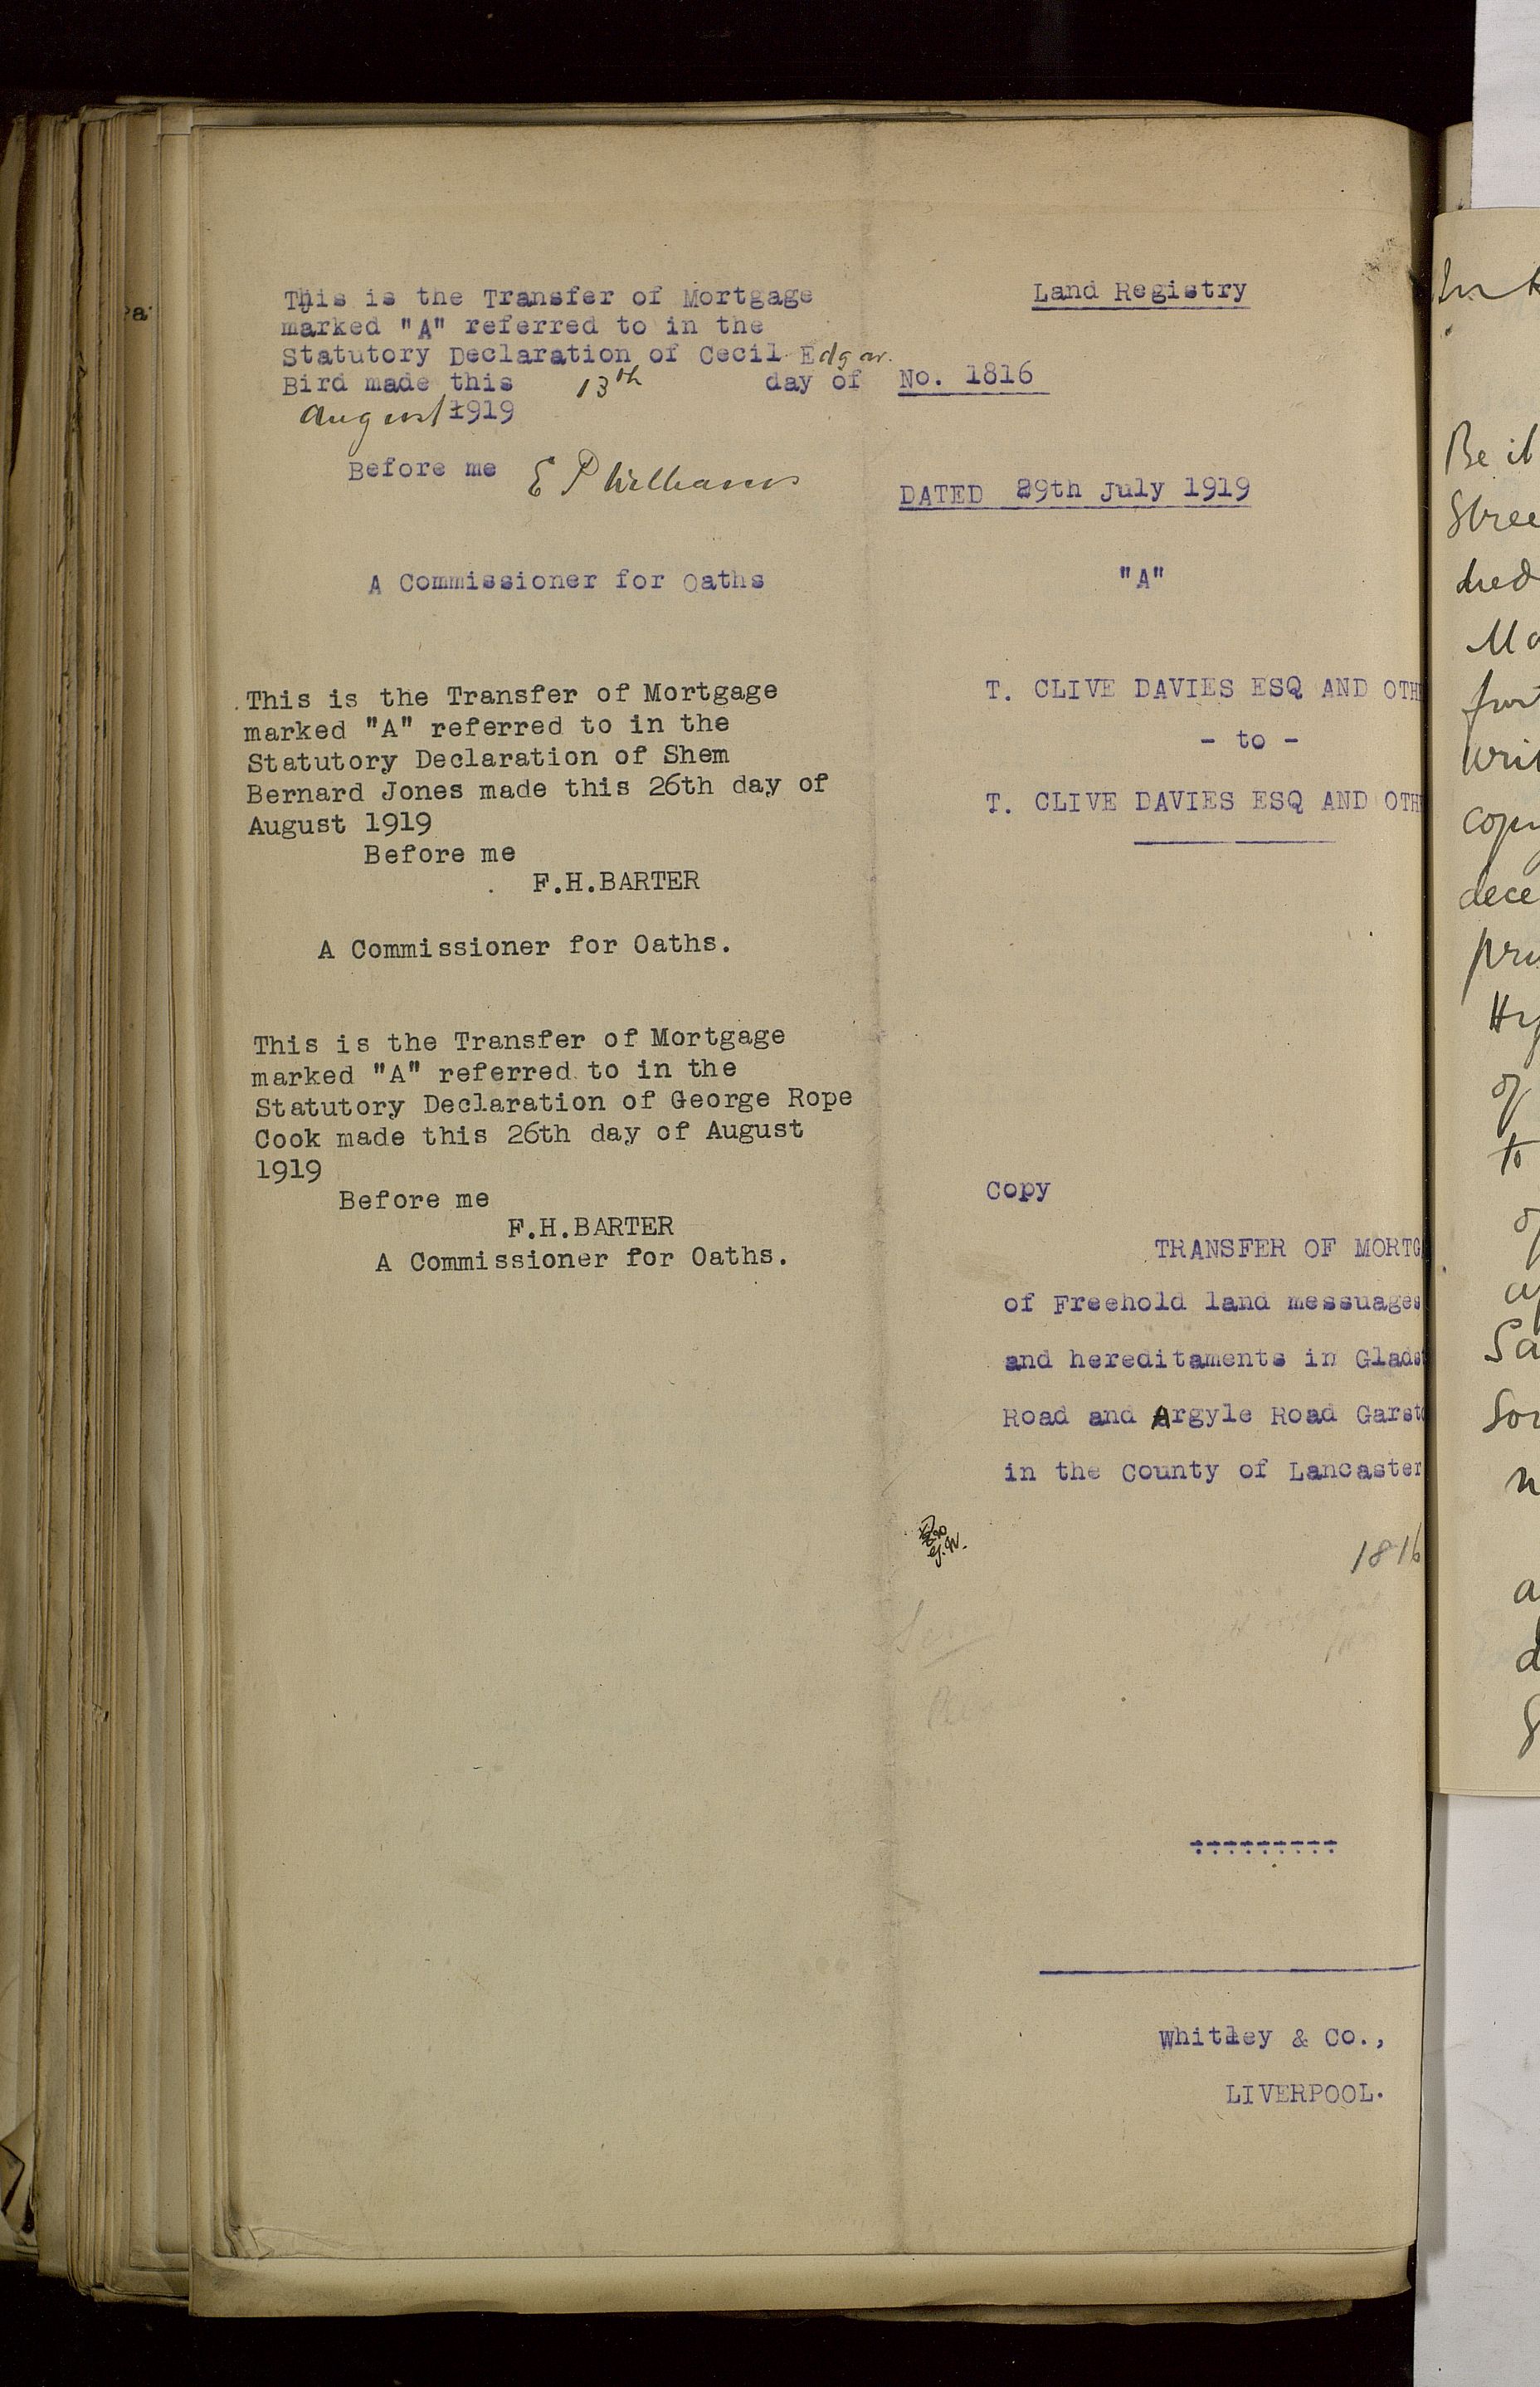 This is the Transfer of Mortgage
marked "A" referred to in the
Statutory Declaration of Cecil Edgar.
Bird made this 13th day of
August 1919
Before me E P Williams
A Commissioner for Oaths
This is the Transfer of Mortgage
marked "A" referred to in the
Statutory Declaration of Shem
Bernard Jones made this 26th day of
August 1919
Before me
F.H.BARTER
A Commissioner for Oaths.
This is the Transfer of Mortgage
marked "A" referred to in the
Statutory Declaration of George Rope
Cook made this 26th day of August
1919
Before me
F.H.BARTER
A Commissioner for Oaths.
Land Registry
No. 1816
DATED 29th July 1919
"A"
T. CLIVE DAVIES ESQ AND OTH
- to -
T. CLIVE DAVIES ESQ AND OTH
Copy
TRANSFER OF MORTG
of Freehold land messuages
and hereditaments in Glads
Road and Argyle Road Garst
in the County of Lancaster
1816
Whitley & Co.,
LIVERPOOL.
Be it
Stree
died
Ma
writ
copy
dece
of
to
Sa